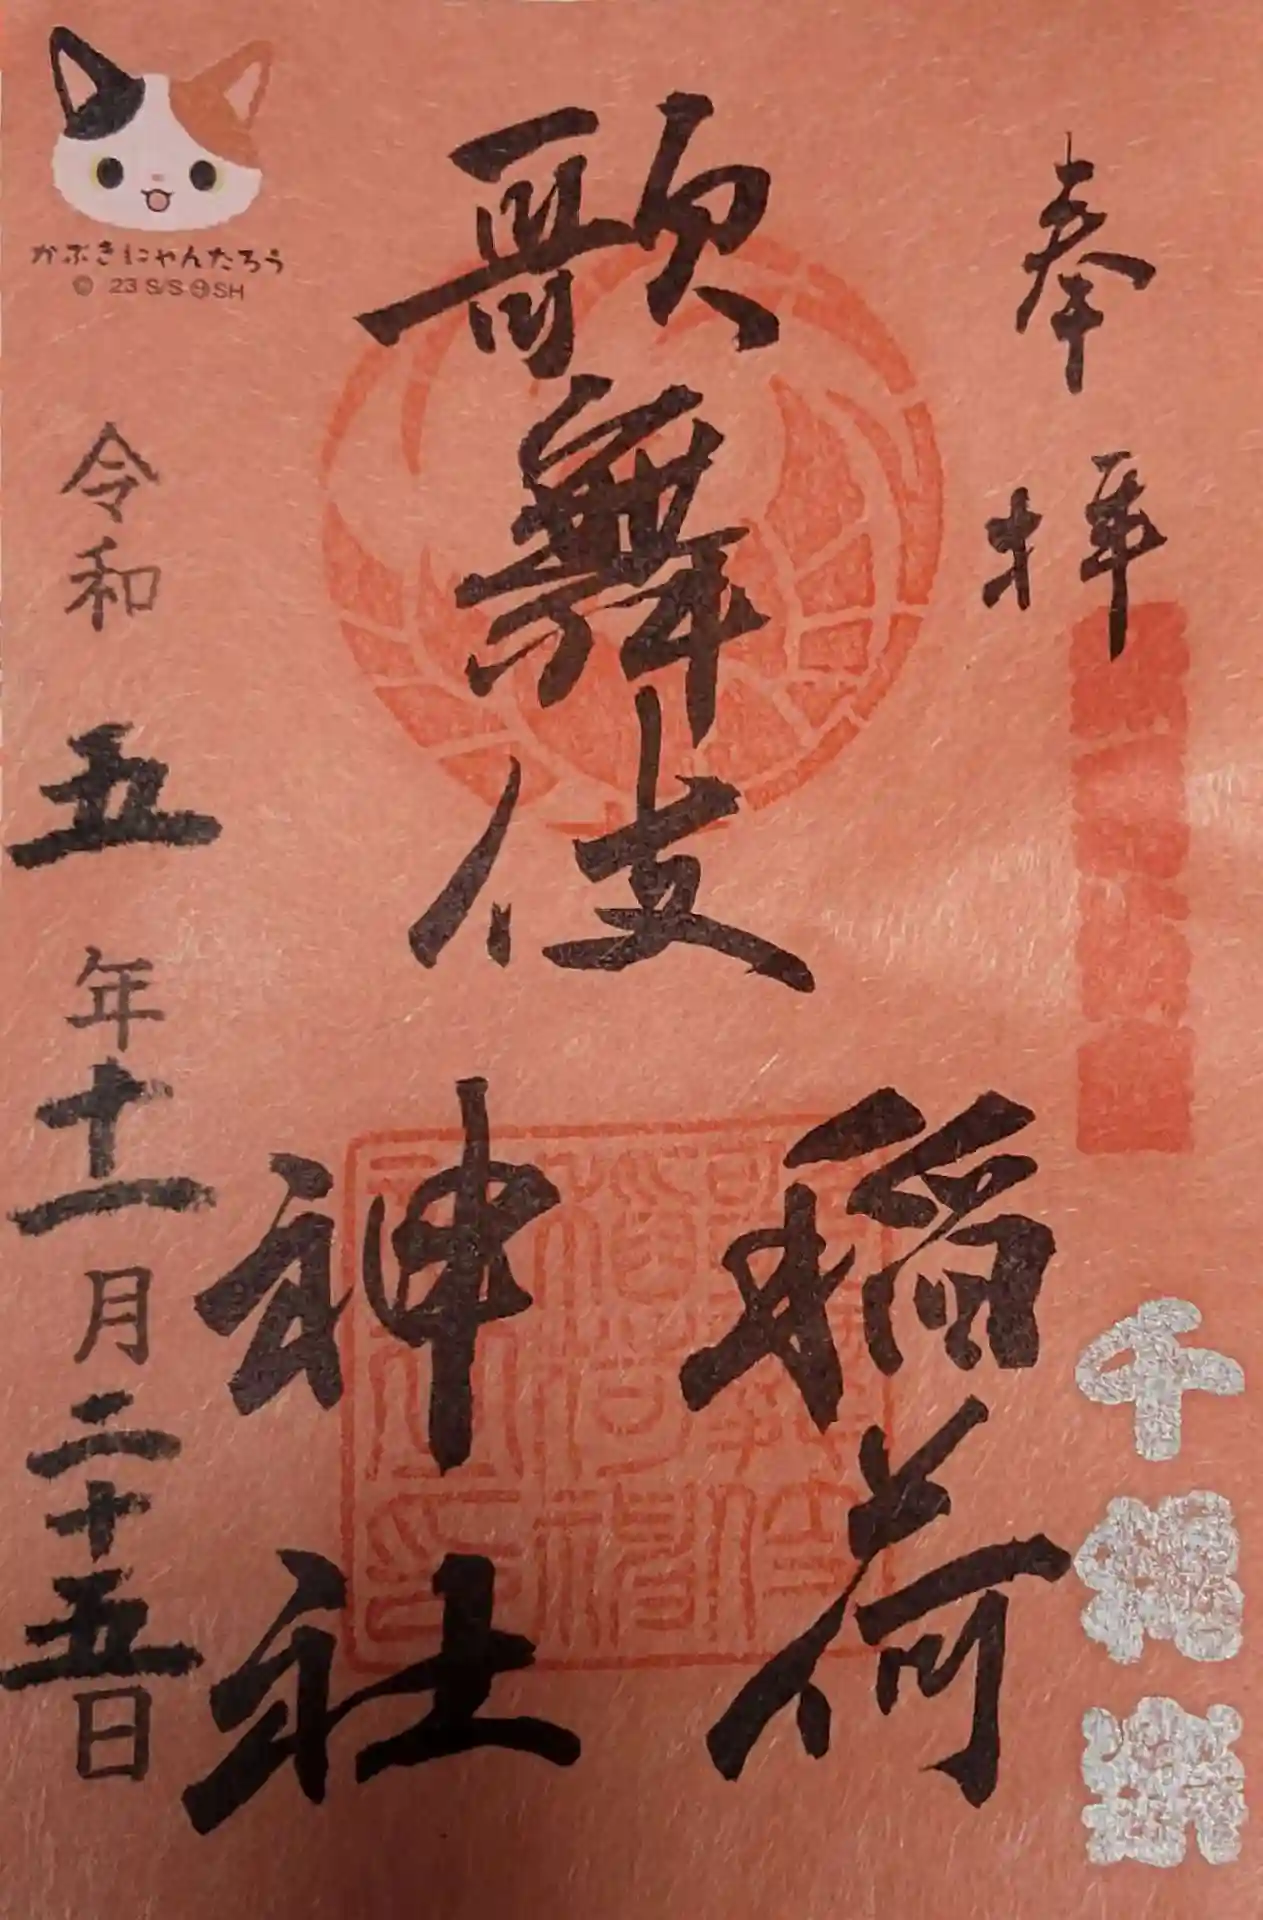 奉拝
千穐楽
歌舞伎
稲荷
神社
かぶきにゃんたろう
© 23 S/S ㊗SH
令和五年十一月二十五日